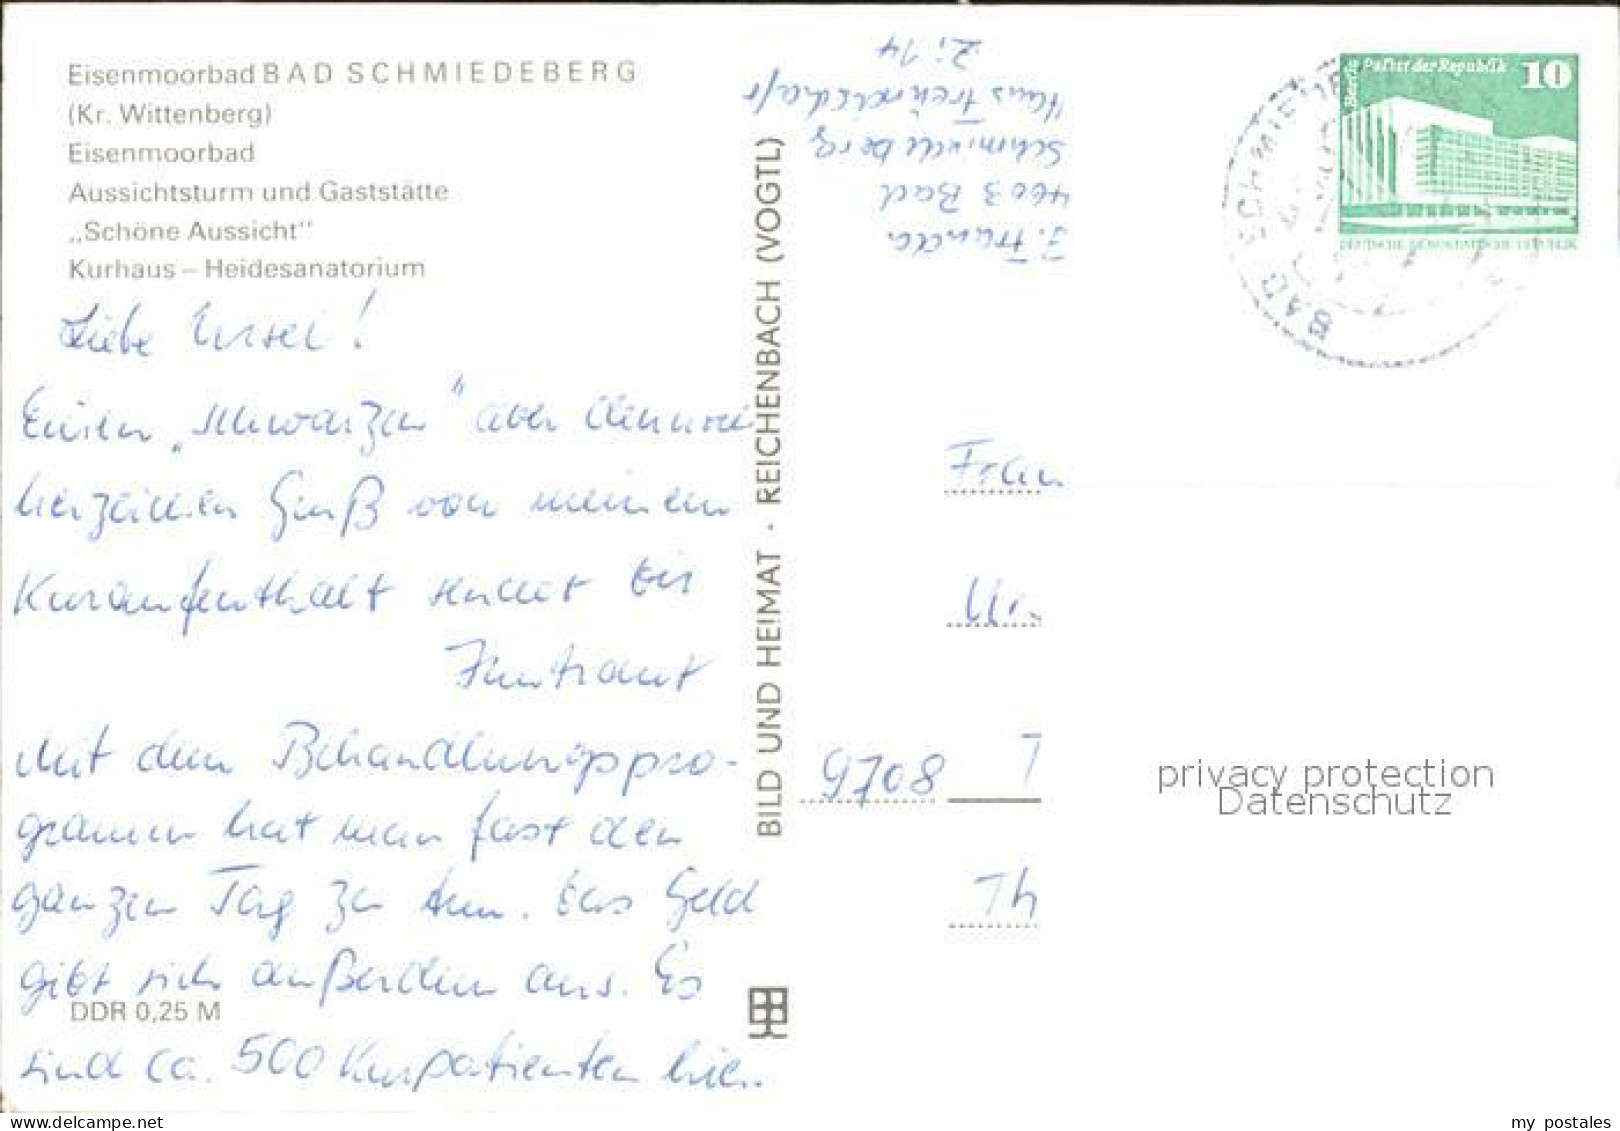 Eisenmoorbad BAD SCHMIEDEBERG
(Kr. Wittenberg)
Eisenmoorbad
Aussichtsturm und Gaststätte
„Schöne Aussicht"
Kurhaus – Heidesanatorium
Liebe Ursel!
Einen „schwarzen" aber dennoch
herzlichen Gruß von meinem
Kuraufenthalt sendet Dir
Mit dem Behandlungspro-
gramm hat man fast den
ganzen Tag zu tun. Das Geld
gibt sich außerdem aus. Es
DDR 0,25 M
sind ca. 500 Kurpatienten hier.
BILD UND HEIMAT · REICHENBACH (VOGTL)
4603 Bad
Schmiedeberg
Haus Freundschaft
Zi 14
Berlin Palast der Republik 10
DEUTSCHE DEMOKRATISCHE REPUBLIK
BAD SCHMIEDEBERG
Frau
Ur
9708 T
Th
privacy protection
Datenschutz
my postales